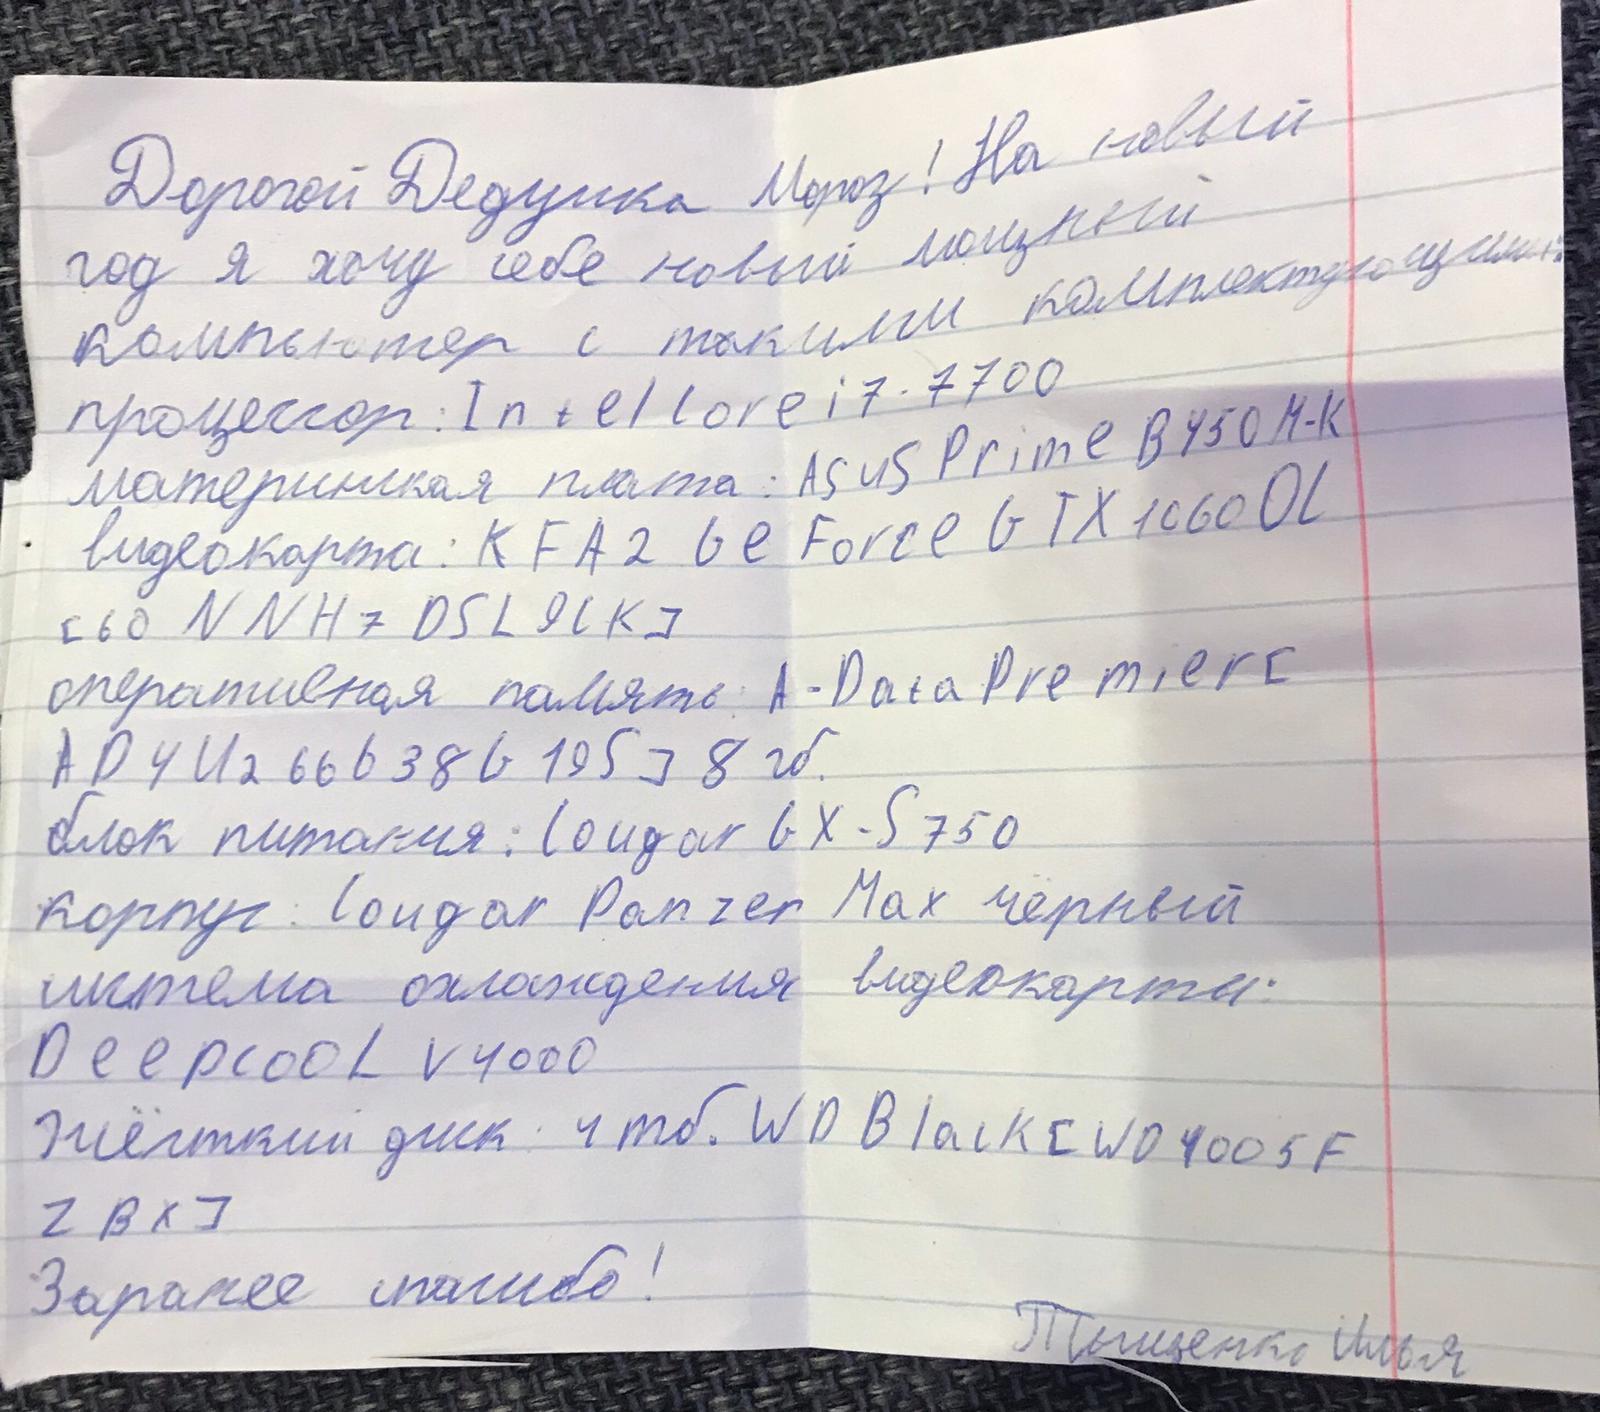 Дорогой Дедушка Мороз! На новый
год я хочу себе новый мощный
компьютер с такими комплектующими:
процессор: Intel Core i7-7700
материнская плата: ASUS Prime B450M-K
видеокарта: KFA2 GeForce GTX 1060 OC
[60NNH7DSL9CK]
оперативная память: A-Data Premier [
AD4U266638G19S] 8 гб.
блок питания: Cougar GX-S750
корпус: Cougar Panzer Max чёрный
система охлаждения видеокарты:
DeepcooL V4000
Жёсткий диск: 4 тб. WD Black [WD4005F
ZBX]
Заранее спасибо!
Тыщенко Илья